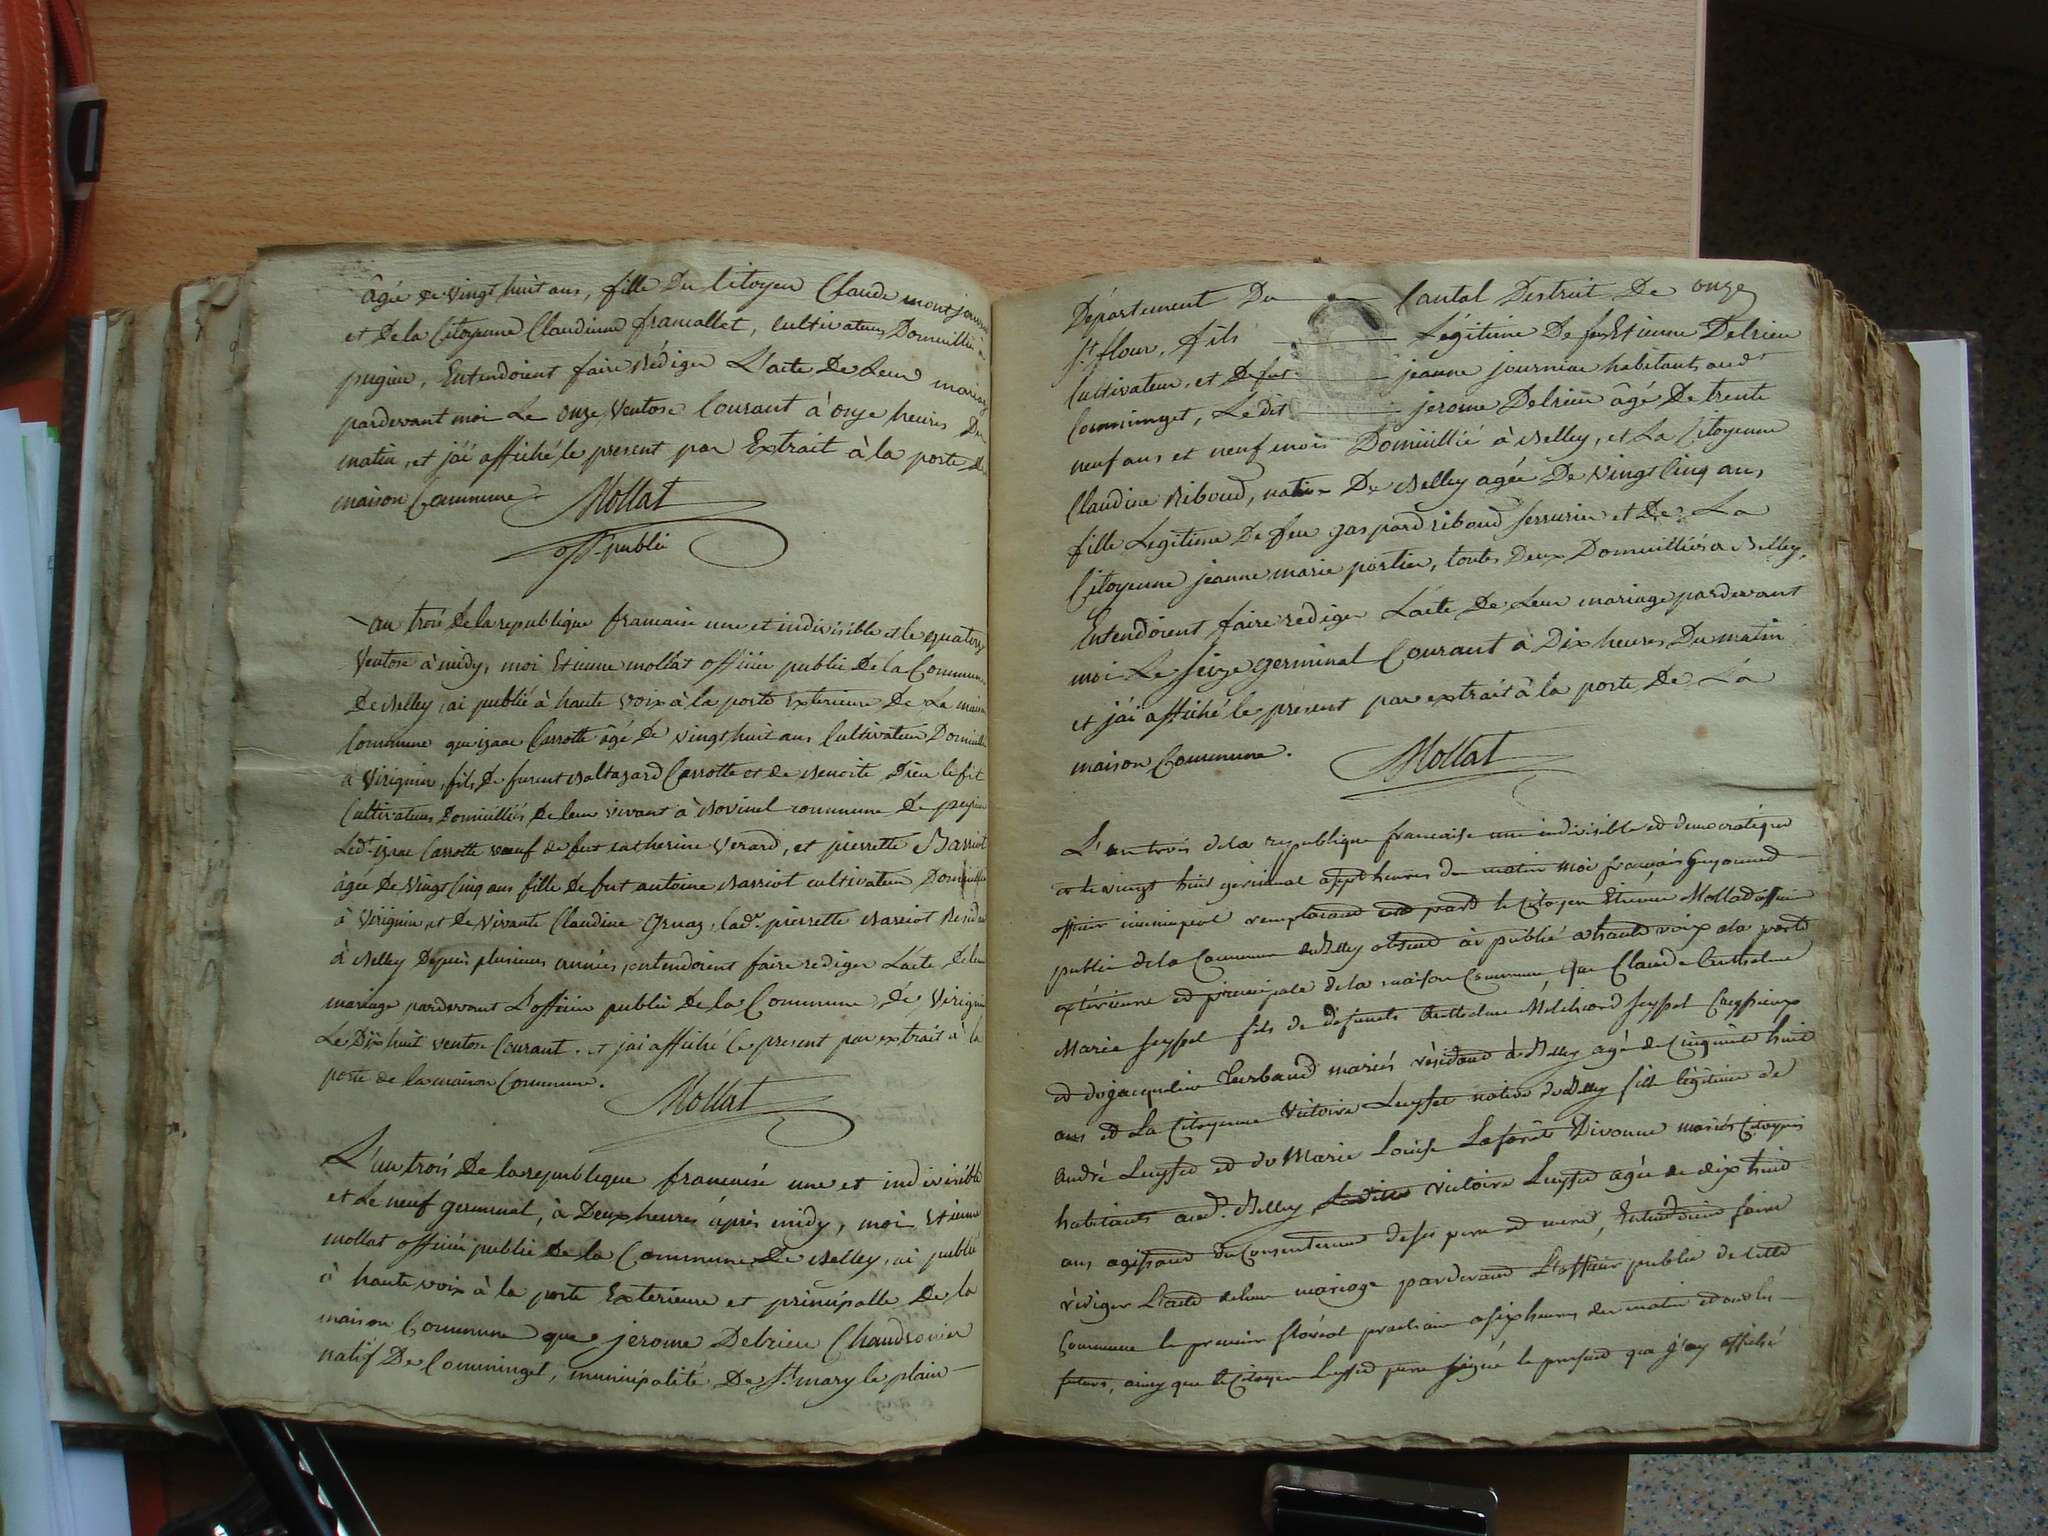 âgée de vingt huit ans, fille Du Citoyen Claude montjouvent
et De la Citoyenne Claudinne francallet, cultivateurs Domicilliés à
pugieu, Entendoient faire Rédiger L'acte De Leur mariage
pardevant moi Le onze Ventose Courant à onze heures Du
matin, et j'ai affiché le present par Extrait à la porte de
maison Commune.
Mollat
off. public
L'an trois De la republique francaise une et indivisible et le quatorze
Ventose à midy, moi Etienne mollat officier public De la Commune
De Belley, ai publié à haute voix à la porte Exterieure De La maison
Commune que izaac Carrotte âgé De vingt huit ans Cultivateur Domicillié
à Virignin, fils De furent Baltazard Carrotte et de Benoite Dieu le fit
Cultivateurs Domicilliés De leur vivant à commune De peyrieu
Led. izaac Carrotte veuf de fut catherine Verard, et pierrette Barriot
âgée De Vingt Cinq ans fille De fut antoine Barriot cultivateur Domicillié
à Virignin et De Vivante Claudine Gruaz, lad. pierrette Barriot Reside
à Belley Depuis plusieurs années, entendoient faire rediger L'acte De leur
mariage pardevant L'officier public De la Commune De Virignin
Le Dix huit ventose Courant. et j'ai affiché le present par extrait à la
porte de la maison Commune.
Mollat
L'an trois De la republique francaise une et indivisible
et Le neuf germinal, à Deux heures après midy, moi Etienne
mollat officier public De la Commune De Belley, ai publié
à haute voix à la porte Exterieure et principalle De la
maison Commune que jerome Delrieu Chaudronier
natif De Comminget, municipalité De St mary le plain
Département Du Cantal District De
St flour, fils Légitime De feu Etienne Delrieu
Cultivateur, et De fut jeanne journiac habitants aud.t
Comminget, Le dit jerome Delrieu âgé De trente
neuf ans et neuf mois Domicillié à Belley, et La Citoyenne
Claudine Riboud, native De Belley agée De Vingt Cinq ans,
fille Legitime De feu gaspard riboud serrurier et De La
Citoyenne jeanne marie portier, toutes Deux Domicilliées à Belley,
Entendoient faire rediger L'acte De Leur mariage pardevant
moi Le seize germinal Courant à Dix heures Du matin
et j'ai affiché le présent par extrait à la porte De La
maison Commune.
Mollat
L'an trois de la republique francaise une indivisible et democratique
et le vingt huit germinal a sept heures du matin moi françois Guyonnet
officier municipal remplacant le Citoyen Etienne Mollat officier
public de la Commune de Belley absend ai publié a haute voix a la porte
extérieure et principale de la maison Commune, que Claude Anthelme
Marie Seyssel fils de défunts Anthelme Melchiord Seyssel
et de jacqueline mariés résidand à Belley agé de Cinquante huit
ans et La Citoyenne Victoire Luyset native de Belley fille légitime de
André Luyset et de Marie Louise Laforêt Divonne mariés Citoyens
habitants aud. Belley, Ladite victoire Luyset agée de dix huit
ans agissand du Consentement de ses pere et mere, Entendoient faire
rédiger L'acte de leur mariage pardevand L'officier public de cette
Commune le premier floréal prochain a six heures du matin et ont les
futurs, ainsy que le Citoyen Luyset pere signé le present que j'ay affiché